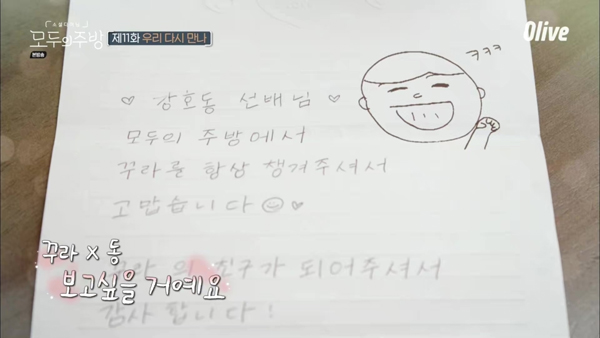 모두의주방
제11화 우리 다시 만나
Olive
ㅋㅋㅋ
♡ 강호동 선배님 ♡
모두의 주방에서
꾸라를 항상 챙겨주셔서
고맙습니다☺♥
의 친구가 되어주셔서
감사 합니다!
꾸라 X 동
보고싶을 거예요